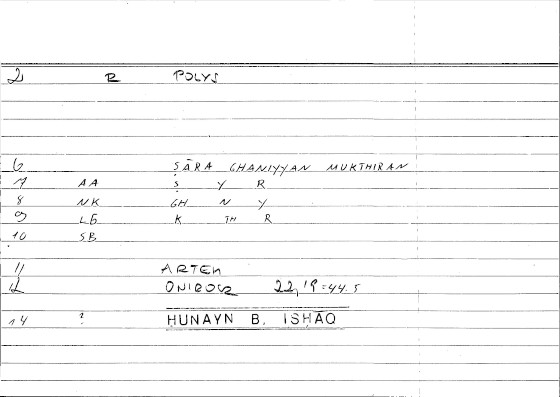 2 R POLYS
6 ṢĀRA GHANIYYAN MUKTHIRAN
7 AA Ṣ Y R
8 NK GH N Y
9 LG K TH R
10 SB
11 ARTEM
12 ONIROCR 22,19=44.5
14 ? HUNAYN B. ISḤĀQ